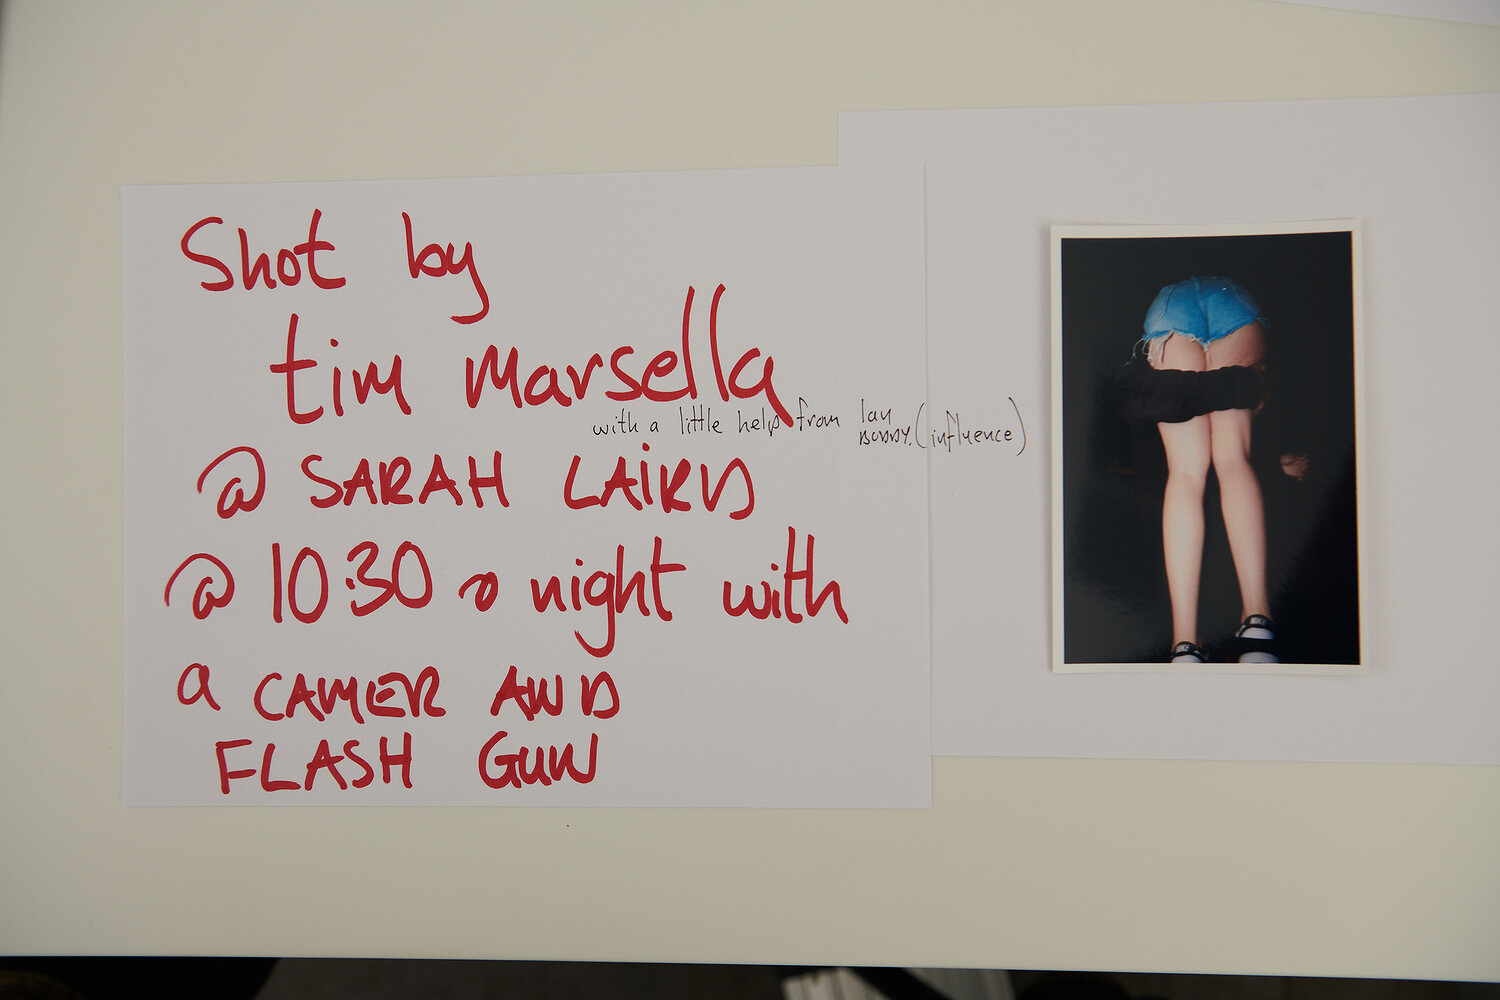 Shot by
tim Marsella
with a little help from Ian
BOBBY. (influence)
@ SARAH LAIRD
@ 10:30 @ night with
a CAMER AND
FLASH GUN